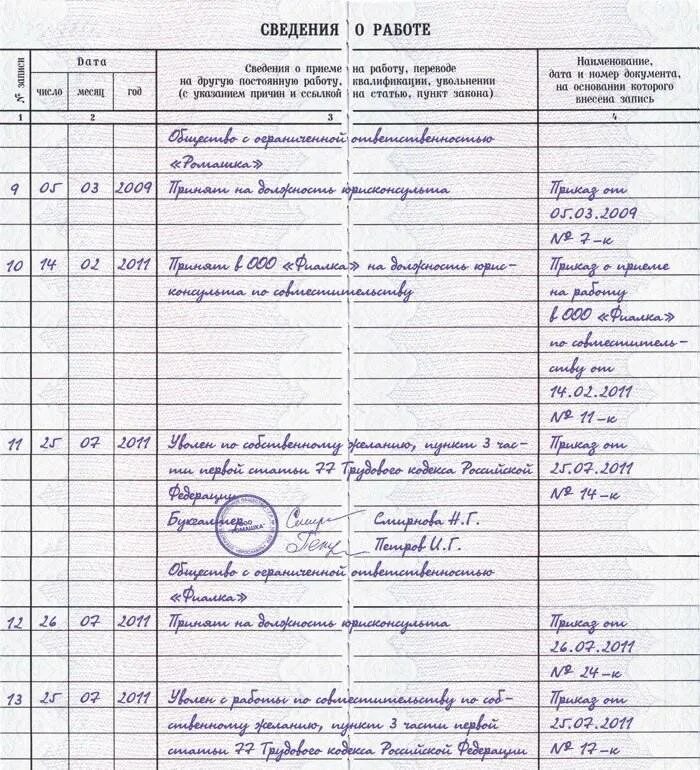 СВЕДЕНИЯ О РАБОТЕ
№ записи
Дата
Сведения о приеме на работу, переводе
на другую постоянную работу, квалификации, увольнении
(с указанием причин и ссылкой на статью, пункт закона)
Наименование,
дата и номер документа,
на основании которого
внесена запись
число месяц год
1 2 3 4
Общество с ограниченной ответственностью
«Ромашка»
9 05 03 2009 Принят на должность юрисконсульта Приказ от
05.03.2009
№ 7-к
10 14 02 2011 Принят в ООО «Фиалка» на должность юрис- Приказ о приеме
консульта по совместительству на работу
в ООО «Фиалка»
по совместитель-
ству от
14.02.2011
№ 11-к
11 25 07 2011 Уволен по собственному желанию, пункт 3 час- Приказ от
ти первой статьи 77 Трудового кодекса Российской 25.07.2011
Федерации № 14-к
Бухгалтер Смирнова Н.Г.
Петров И.Г.
ООО
"РОМАШКА"
Общество с ограниченной ответственностью
«Фиалка»
12 26 07 2011 Принят на должность юрисконсульта Приказ от
26.07.2011
№ 24-к
13 25 07 2011 Уволен с работы по совместительству по соб- Приказ от
ственному желанию, пункт 3 части первой 25.07.2011
статьи 77 Трудового кодекса Российской Федерации № 17-к